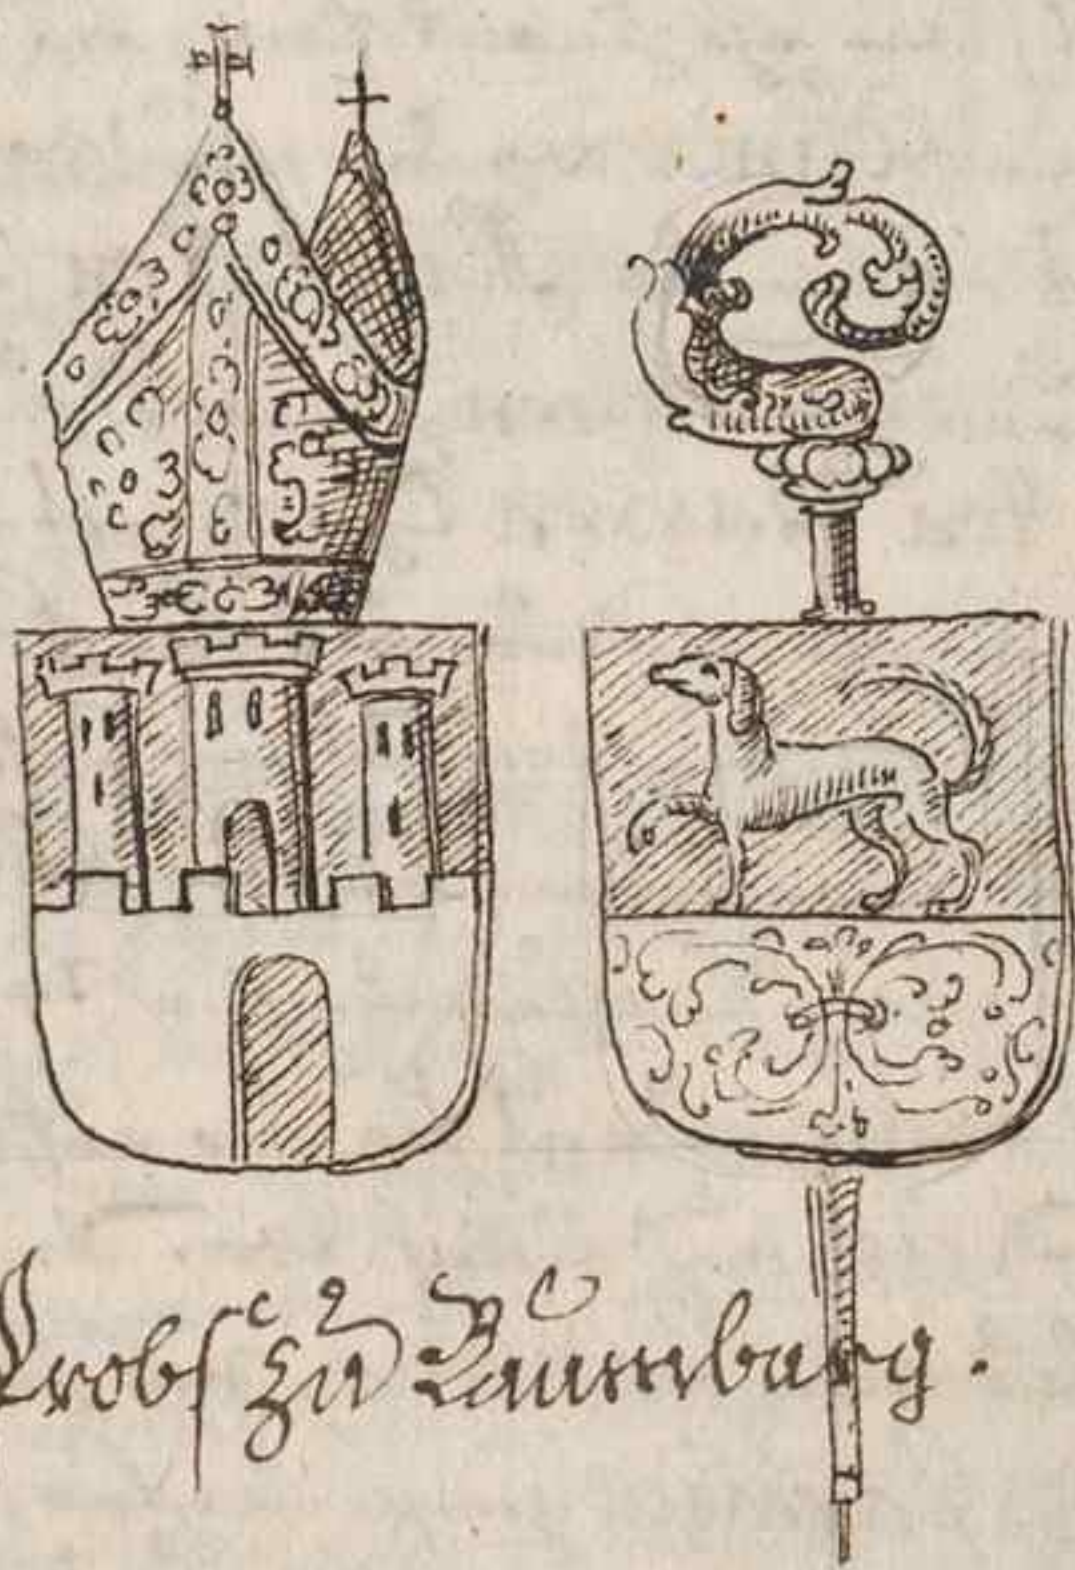 Probst zu Baumburg.